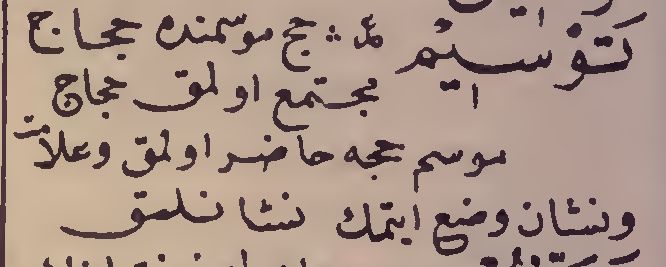 كَتَوْسِيْم عر حج موسمنده حجاج
مجتمع اولمق حجاج
موسم حجه حاضر اولمق وعلامت
ونشان وضع ايتمك نشانلمق